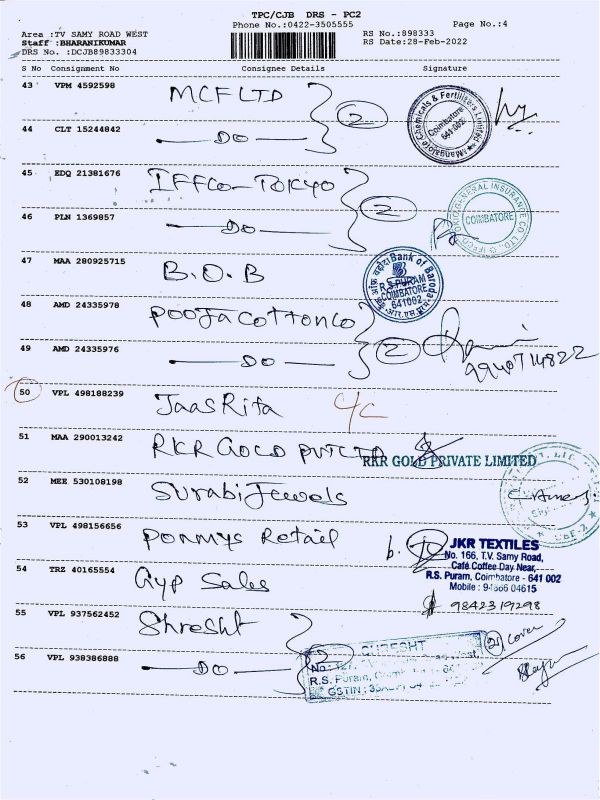 TPC/CJB DRS - PC2
Phone No.:0422-3505555
Page No.:4
Area :TV SAMY ROAD WEST
Staff :BHARANIKUMAR
DRS No. :DCJB89833304
RS No.:898333
RS Date:28-Feb-2022
S No Consignment No Consignee Details Signature
43 VPM 4592598 MCF LTD
2
Mangalore Chemicals & Fertilizers Limited
Coimbatore
641 002
44 CLT 15244842 — DO —
45 EDQ 21381676 IFFCO-TOKYO
2
COIMBATORE
46 PLN 1369857 — DO —
47 MAA 280925715 B.O.B
Bank of Baroda
R.S.PURAM
COIMBATORE
641002
48 AMD 24335978 Pooja Cotton Co
2
9940714822
49 AMD 24335976 — DO —
50 VPL 498188239 JaasRita
51 MAA 290013242 RKR GOLD PVT LTD
RKR GOLD PRIVATE LIMITED
52 MEE 530108198 Surabi Jewels
53 VPL 498156656 Ponmys Retail
JKR TEXTILES
No. 166, T.V. Samy Road,
Café Coffee Day Near,
R.S. Puram, Coimbatore - 641 002
Mobile : 94866 04615
54 TRZ 40165554 Gyp Sales
9842319298
55 VPL 937562452 Shresht
SHRESHT
R.S. Puram,
GSTIN :
2 cover
56 VPL 938386888 — DO —